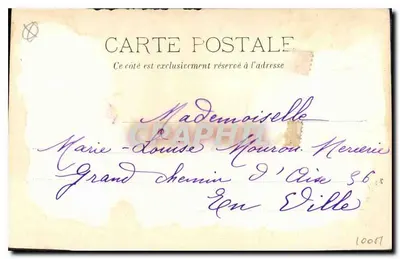 CARTE POSTALE
Ce côté est exclusivement réservé à l'adresse
Mademoiselle
Marie-Louise Mouron Mercerie
Grand chemin d'Aix 36
En Ville